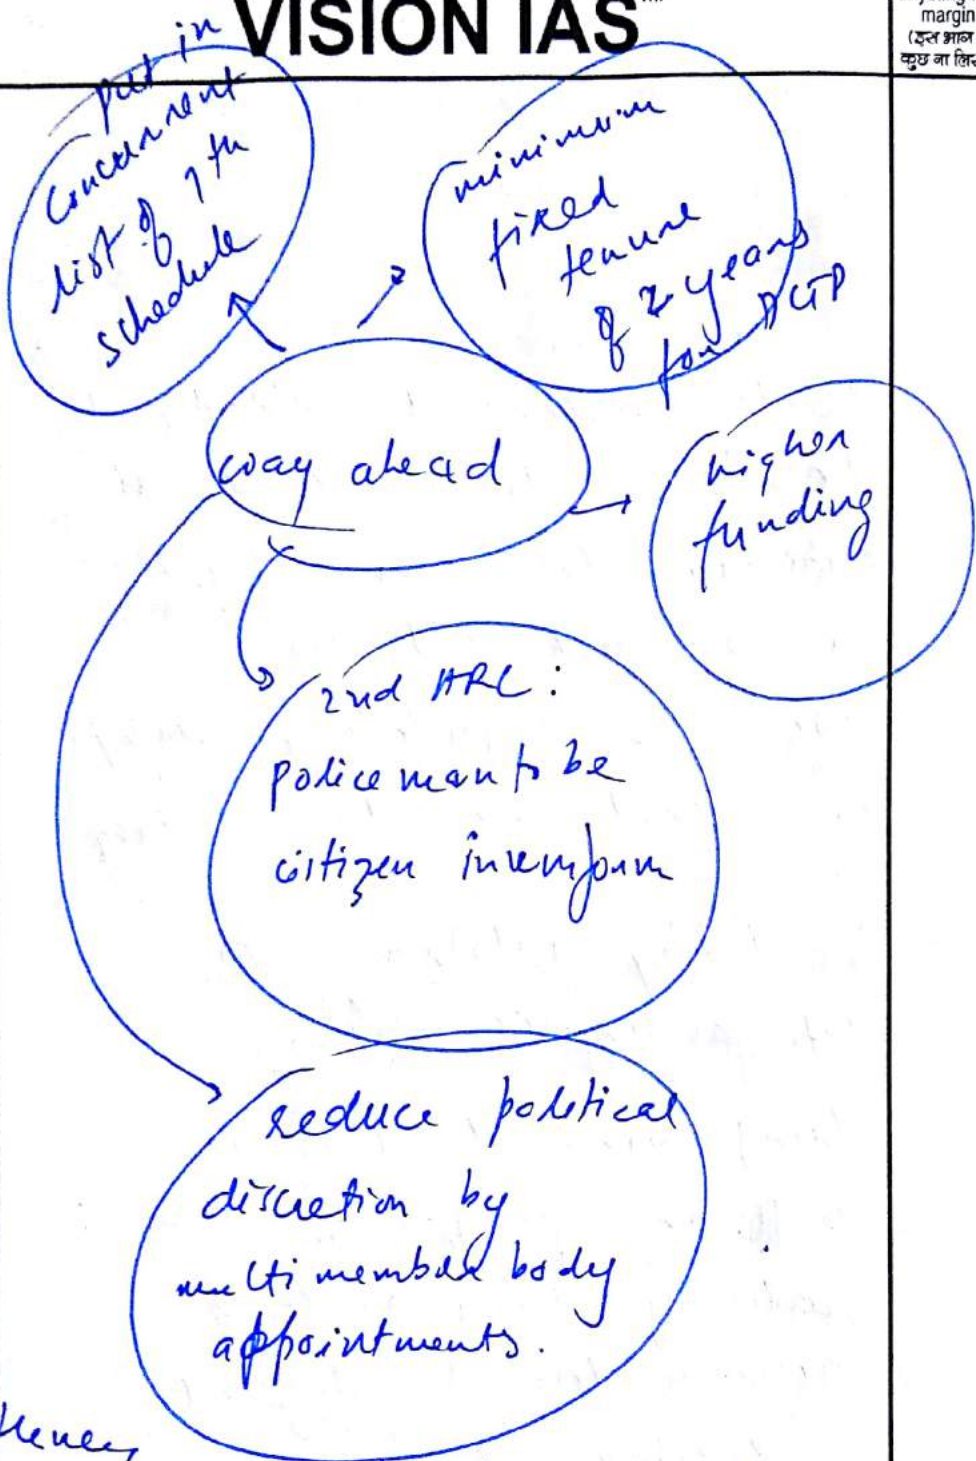 VISION IAS
margin
(इस भाग
कुछ ना लिख
put in
concurrent
list of 7th
schedule
minimum
fixed
tenure
of 2 years
for DGP
way ahead
higher
funding
2nd ARC :
policeman to be
citizen in uniform
reduce political
discretion by
multi member body
appointments.
Hence,